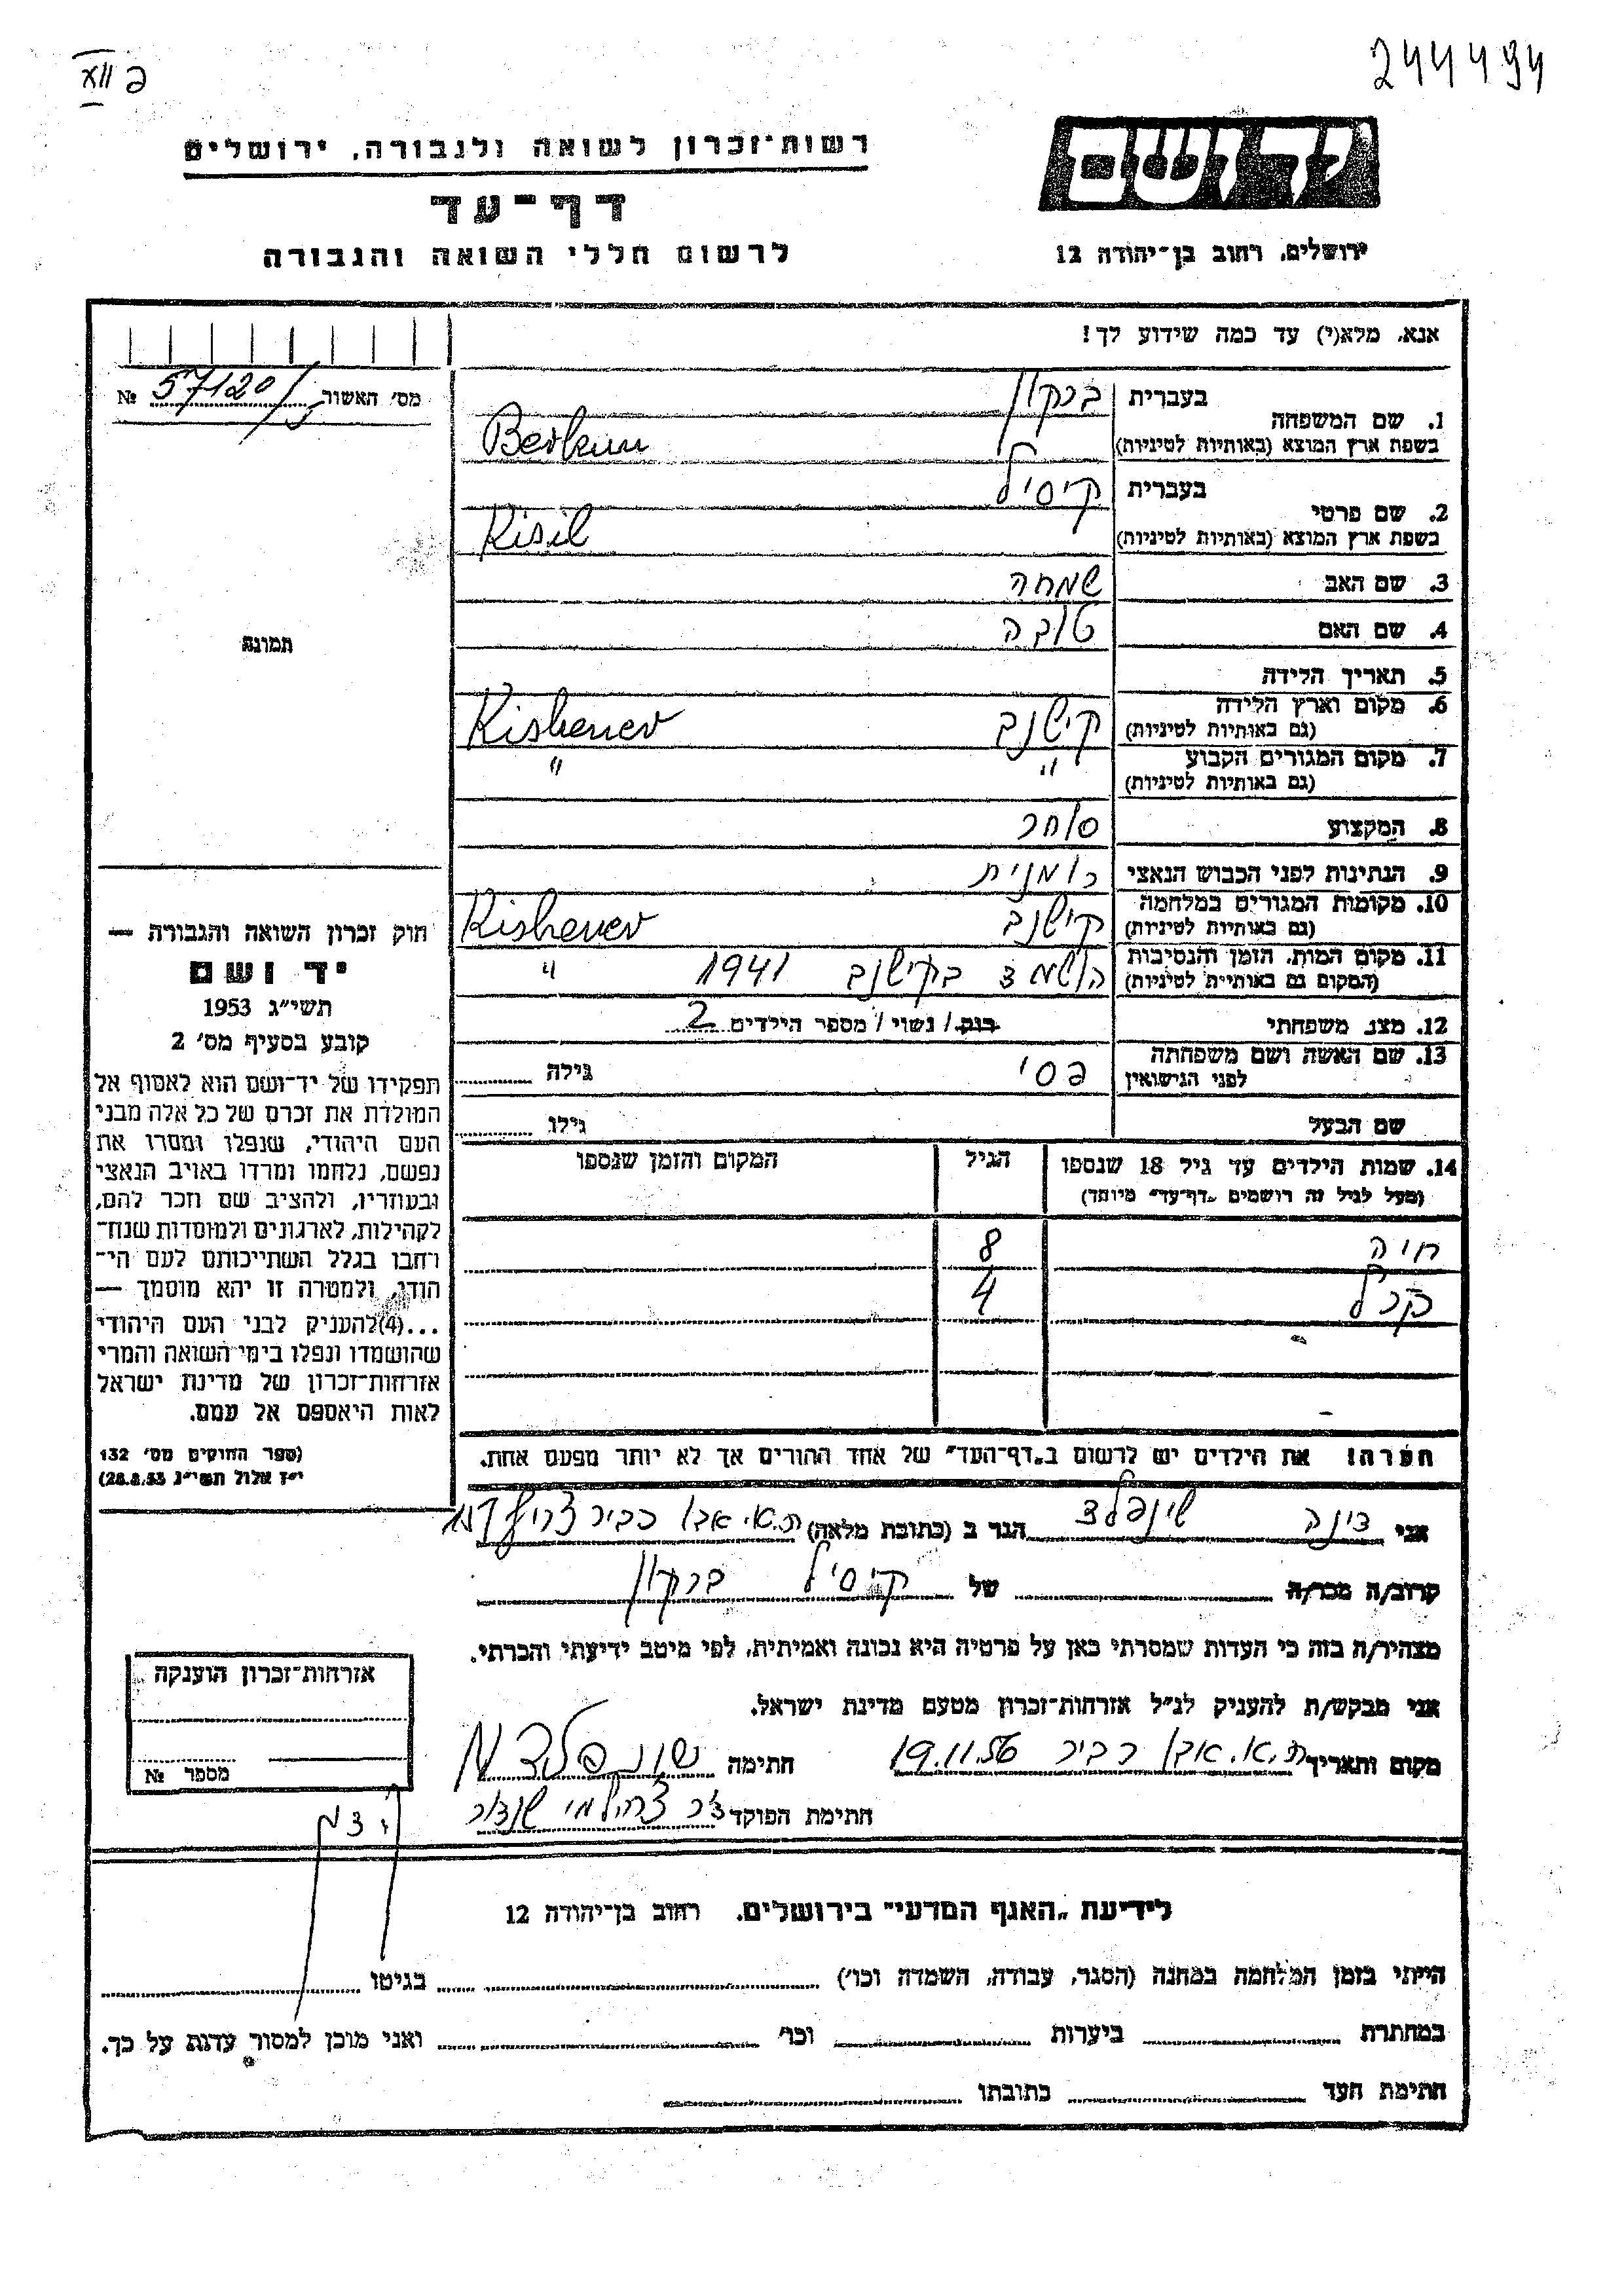 244494
רשות־זכרון לשואה ולגבורה, ירושלים
דף־עד
לרשום חללי השואה והגבורה
יד ושם
ירושלים, רחוב בן־יהודה 12
אנא, מלא(י) עד כמה שידוע לך!
מס' האשור 57120 №
1. שם המשפחה בעברית ברקון
בשפת ארץ המוצא (באותיות לטיניות) Berkun
2. שם פרטי בעברית קיסיל
בשפת ארץ המוצא (באותיות לטיניות) Kisil
3. שם האב שמחה
4. שם האם טובה
5. תאריך הלידה
6. מקום וארץ הלידה קישנב Kishenev
(גם באותיות לטיניות)
7. מקום המגורים הקבוע " "
(גם באותיות לטיניות)
8. המקצוע סוחר
9. הנתינות לפני הכבוש הנאצי רומנית
10. מקומות המגורים במלחמה קישנב Kishenev
(גם באותיות לטיניות)
11. מקום המות, הזמן והנסיבות הושמד בקישנב 1941 "
(המקום גם באותיות לטיניות)
12. מצב משפחתי רווק / נשוי / מספר הילדים 2
13. שם האשה ושם משפחתה פסי גילה
לפני הנישואין
שם הבעל גילו
14. שמות הילדים עד גיל 18 שנספו הגיל המקום והזמן שנספו
(מעל לגיל זה רושמים „דף־עד" מיוחד)
חיה 8
רחל 4
הערה! את הילדים יש לרשום ב„דף־העד" של אחד ההורים אך לא יותר מפעם אחת.
תמונה
חוק זכרון השואה והגבורה —
יד ושם
תשי"ג 1953
קובע בסעיף מס' 2
תפקידו של יד־ושם הוא לאסוף אל
המולדת את זכרם של כל אלה מבני
העם היהודי, שנפלו ומסרו את
נפשם, נלחמו ומרדו באויב הנאצי
ובעוזריו, ולהציב שם וזכר להם,
לקהילות, לארגונים ולמוסדות שנח־
רבו בגלל השתייכותם לעם הי־
הודי, ולמטרה זו יהא מוסמך —
...(4) להעניק לבני העם היהודי
שהושמדו ונפלו בימי השואה והמרי
אזרחות־זכרון של מדינת ישראל
לאות היאספם אל עמם.
(ספר החוקים מס' 132
י"ז אלול תשי"ג 28.8.53)
אני דינה שינפלד הגר ב (כתובת מלאה) ת.א. אבו כביר צריף
קרוב/ה מכר/ה של קיסיל ברקון
מצהיר/ה בזה כי העדות שמסרתי כאן על פרטיה היא נכונה ואמיתית, לפי מיטב ידיעתי והכרתי.
אני מבקש/ת להעניק לנ"ל אזרחות־זכרון מטעם מדינת ישראל.
מקום ותאריך ת.א. אבו כביר 19.11.56 חתימה
חתימת הפוקד
אזרחות־זכרון הוענקה
מספר №
לידיעת „האגף המדעי" בירושלים, רחוב בן־יהודה 12
הייתי בזמן המלחמה במחנה (הסגר, עבודה, השמדה וכו') בגיטו
במחתרת ביערות וכו' ואני מוכן למסור עדות על כך.
חתימת העד כתובתו